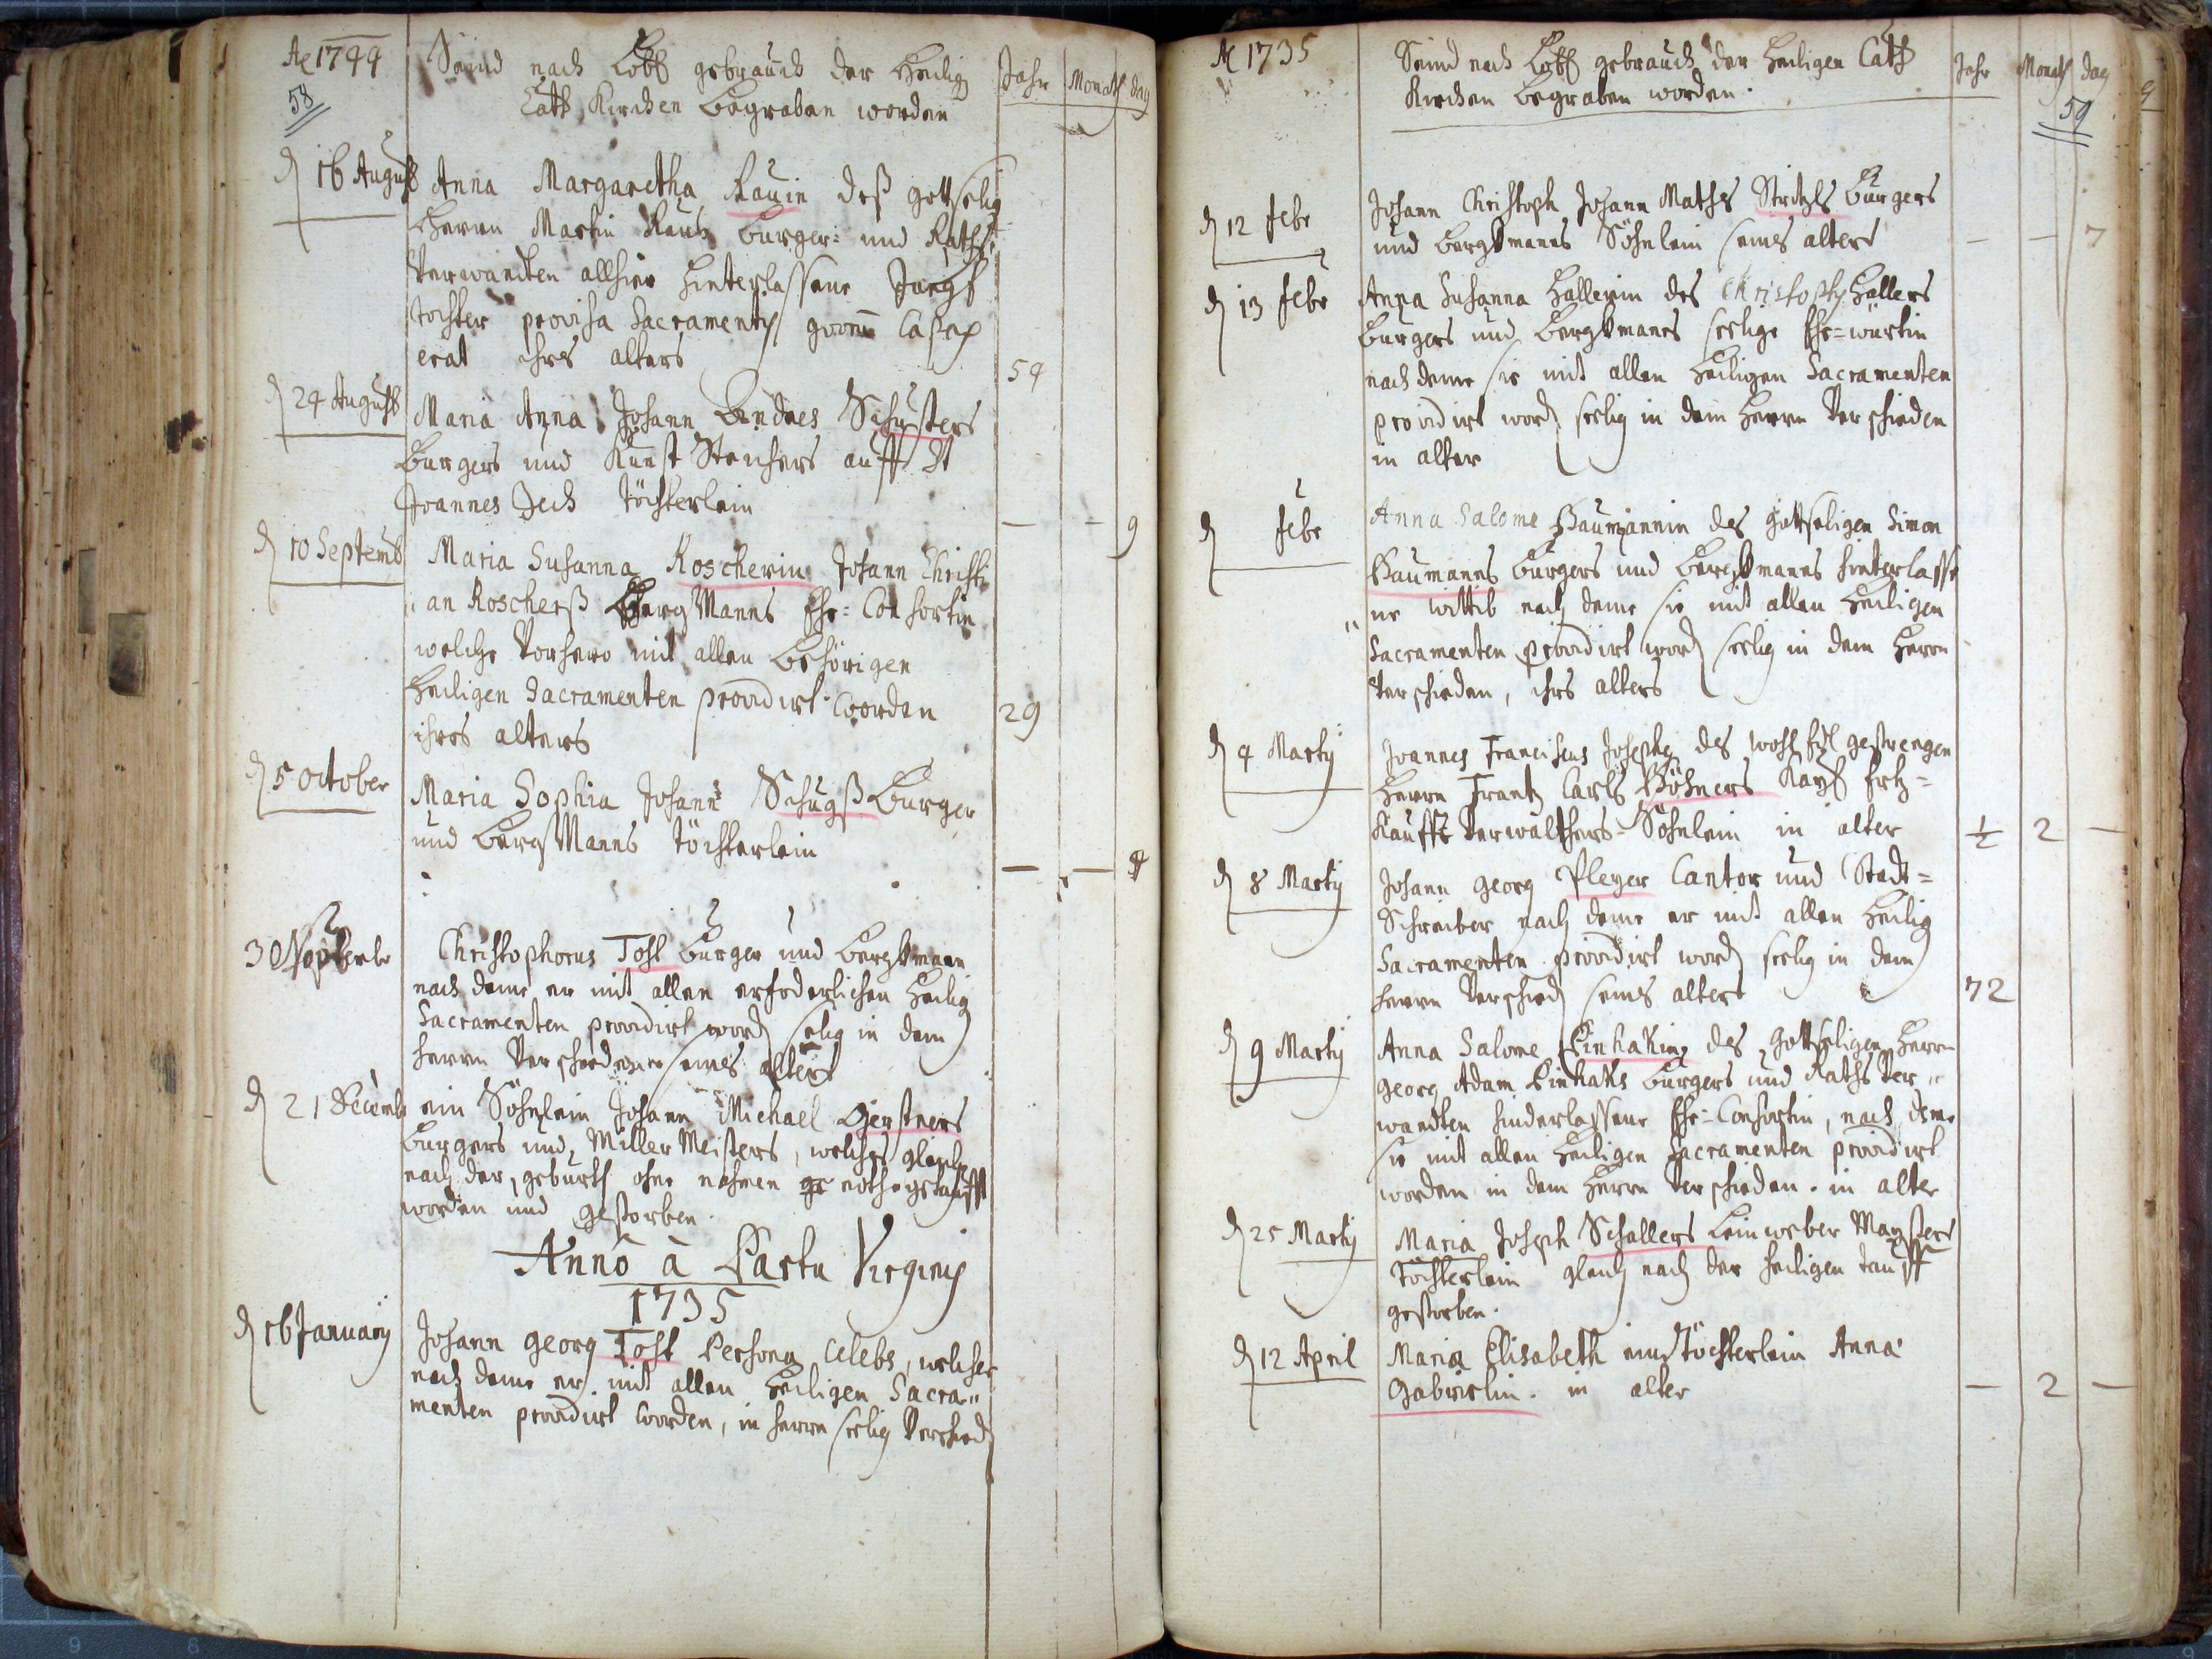 Ao 1744
58
Seind nach Löbl gebrauch der Heilig
Cath Kirchen Begraben worden
Jahr Monath dag
d 16 August Anna Margaretha Rauin deß gottselig
Herrn Martin Rauhs burger: und Raths
Verwandten allhier hinterlassene Jungf
tochter provisa Sacramentis quorum Capax
erat ihrs alters 54
d 24 August Maria Anna Johann Andres Schusters
Burgers und Kunst Steuhers auff St
Joannes Zech töchterlein — — 9
d 10 Septemb Maria Susanna Roscherin Johann Christi
an Roscherß BergManns Ehe=Consortin
welche Vorhero mit allen behörigen
Heiligen Sacramenten providirt worden
ihres alters 29
d 5 October Maria Sophia Johann Schugß Burger
und BergManns töchterlein — —
30 Christophorus Tost burger und bergkmann
nach deme er mit allen erfoderlichen Heilig
Sacramenten providirt word selig in dem
Herrn Verschieden seines alters
d 21 Decemb ein Söhnlein Johann Michael Gerstners
Burgers und Miller Meisters, welches gleich
nach der geburth ohne nahmen ge nothgetaufft
worden und gestorben.
Anno à Partu Virginis
1735
d 16 January Johann Georg Tost Persona Celebs, welcher
nach deme er mit allen Heiligen Sacra„
menten providirt worden, in Herrn selig Verschied
A 1735
Seind nach Löbl gebrauch der Heiligen Cath
Kirchen begraben worden.
Jahr Monath dag
59
9
d 12 Febr Johann Christoph Johann Maths Stritzls burgers
und bergkmanns Söhnlein seines alters — — 7
d 13 Febr Anna Susanna Hallerin des Christoph Hallers
burgers und bergkmanns seelige Ehe=würtin
nach deme sie mit allen Heiligen Sacramenten
providirt word seelig in dem Herrn Verschieden
in alter
d Febr Anna Salome Baumannin des gottseligen Simon
Baumanns burgers und bergkmanns hinterlasse
„ ne wittib nach deme sie mit allen Heiligen
Sacramenten providirt word seelig in dem Herrn
Verschieden, ihrs alters
d 4 Marty Joannes Franciscus Josephg des wohl Edl gestrengen
Herrn Frantz Carls Böhners Kays Ertz=
Kauffs Verwalthers=Söhnlein in alter ½ 2 —
d 8 Marty Johann Georg Pleyer Cantor und Stadt=
Schreiber nach deme er mit allen Heilig
Sacramenten providirt word seelig in dem
Herrn Verschied seines alters 72
d 9 Marty Anna Salome Linhakin des Gottseligen Herrn
Georg Adam Linhaks burgers und Raths Ver„
wandten hinderlassene Ehe=Consortin, nach deme
sie mit allen Heiligen Sacramenten providirt
worden in dem Herrn Verschieden. in alter
d 25 Marty Maria Joseph Schallers Leinweber Maysters
Töchterlein gleich nach der heiligen tauff
gestorben.
d 12 April Maria Elisabeth eine töchterlein Anna
Gabrielin. in alter — 2 —